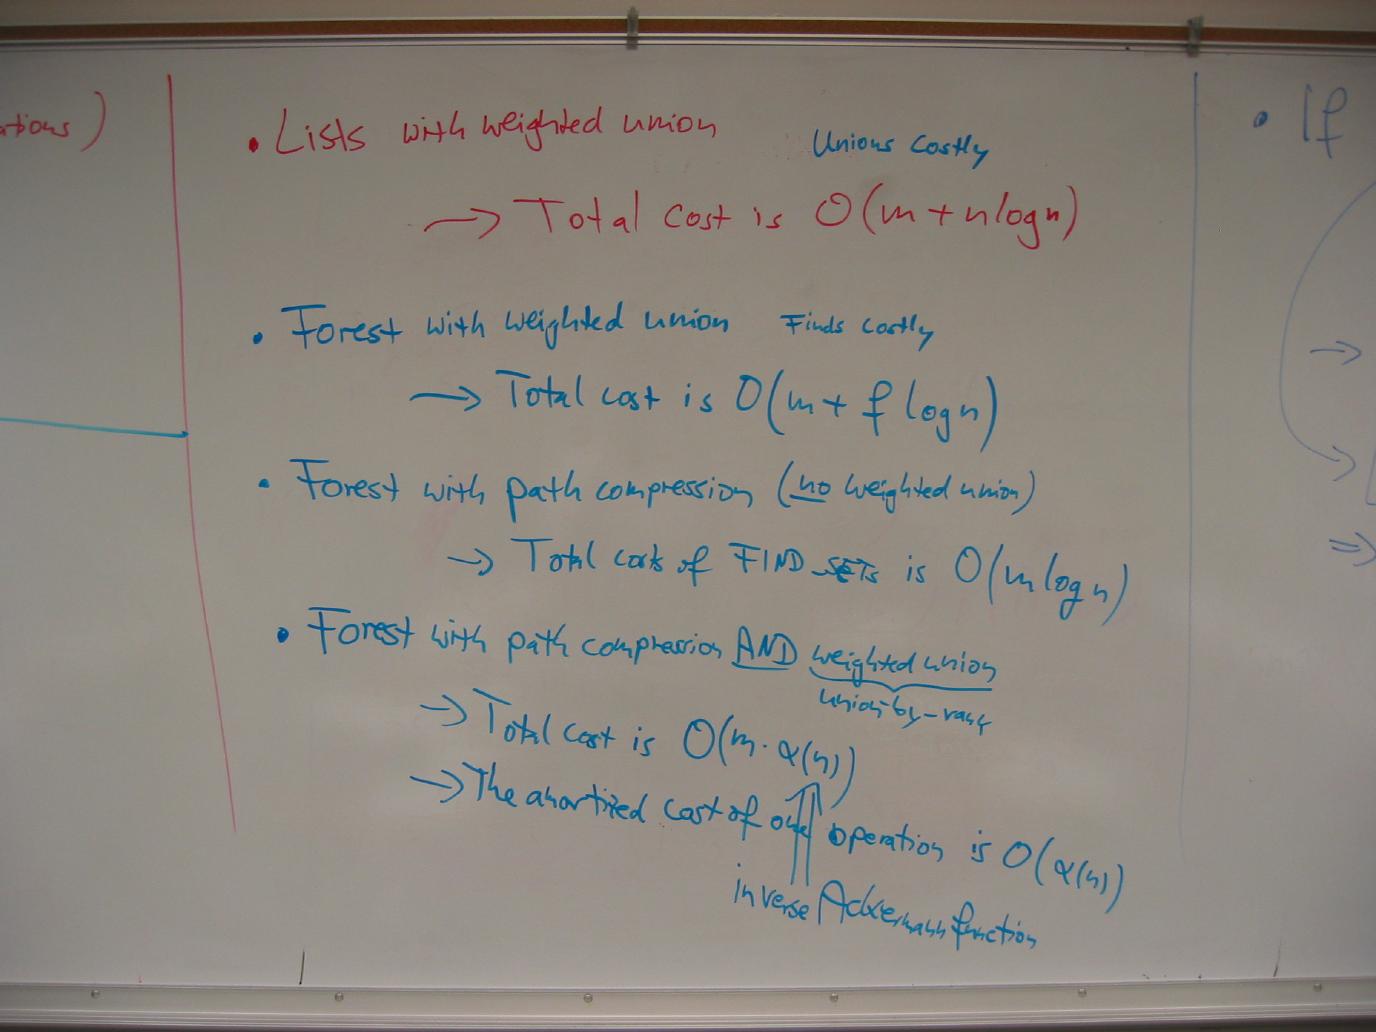 ations)
• Lists with weighted union Unions costly
→ Total cost is O(m + n log n)
• Forest with weighted union Finds costly
→ Total cost is O(m + f log n)
• Forest with path compression (no weighted union)
→ Total costs of FIND_SETs is O(m log n)
• Forest with path compression AND weighted union
union-by-rank
→ Total cost is O(m · α(n))
→ The amortized cost of one operation is O(α(n))
inverse Ackermann function
• If
→
→
⇒